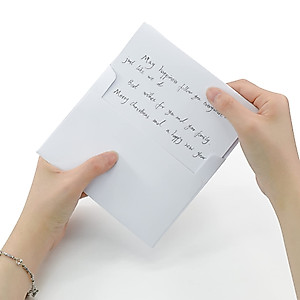 May happiness follow you everywhere
just like we do
Best wishes for you and your family
Merry Christmas and a happy new year